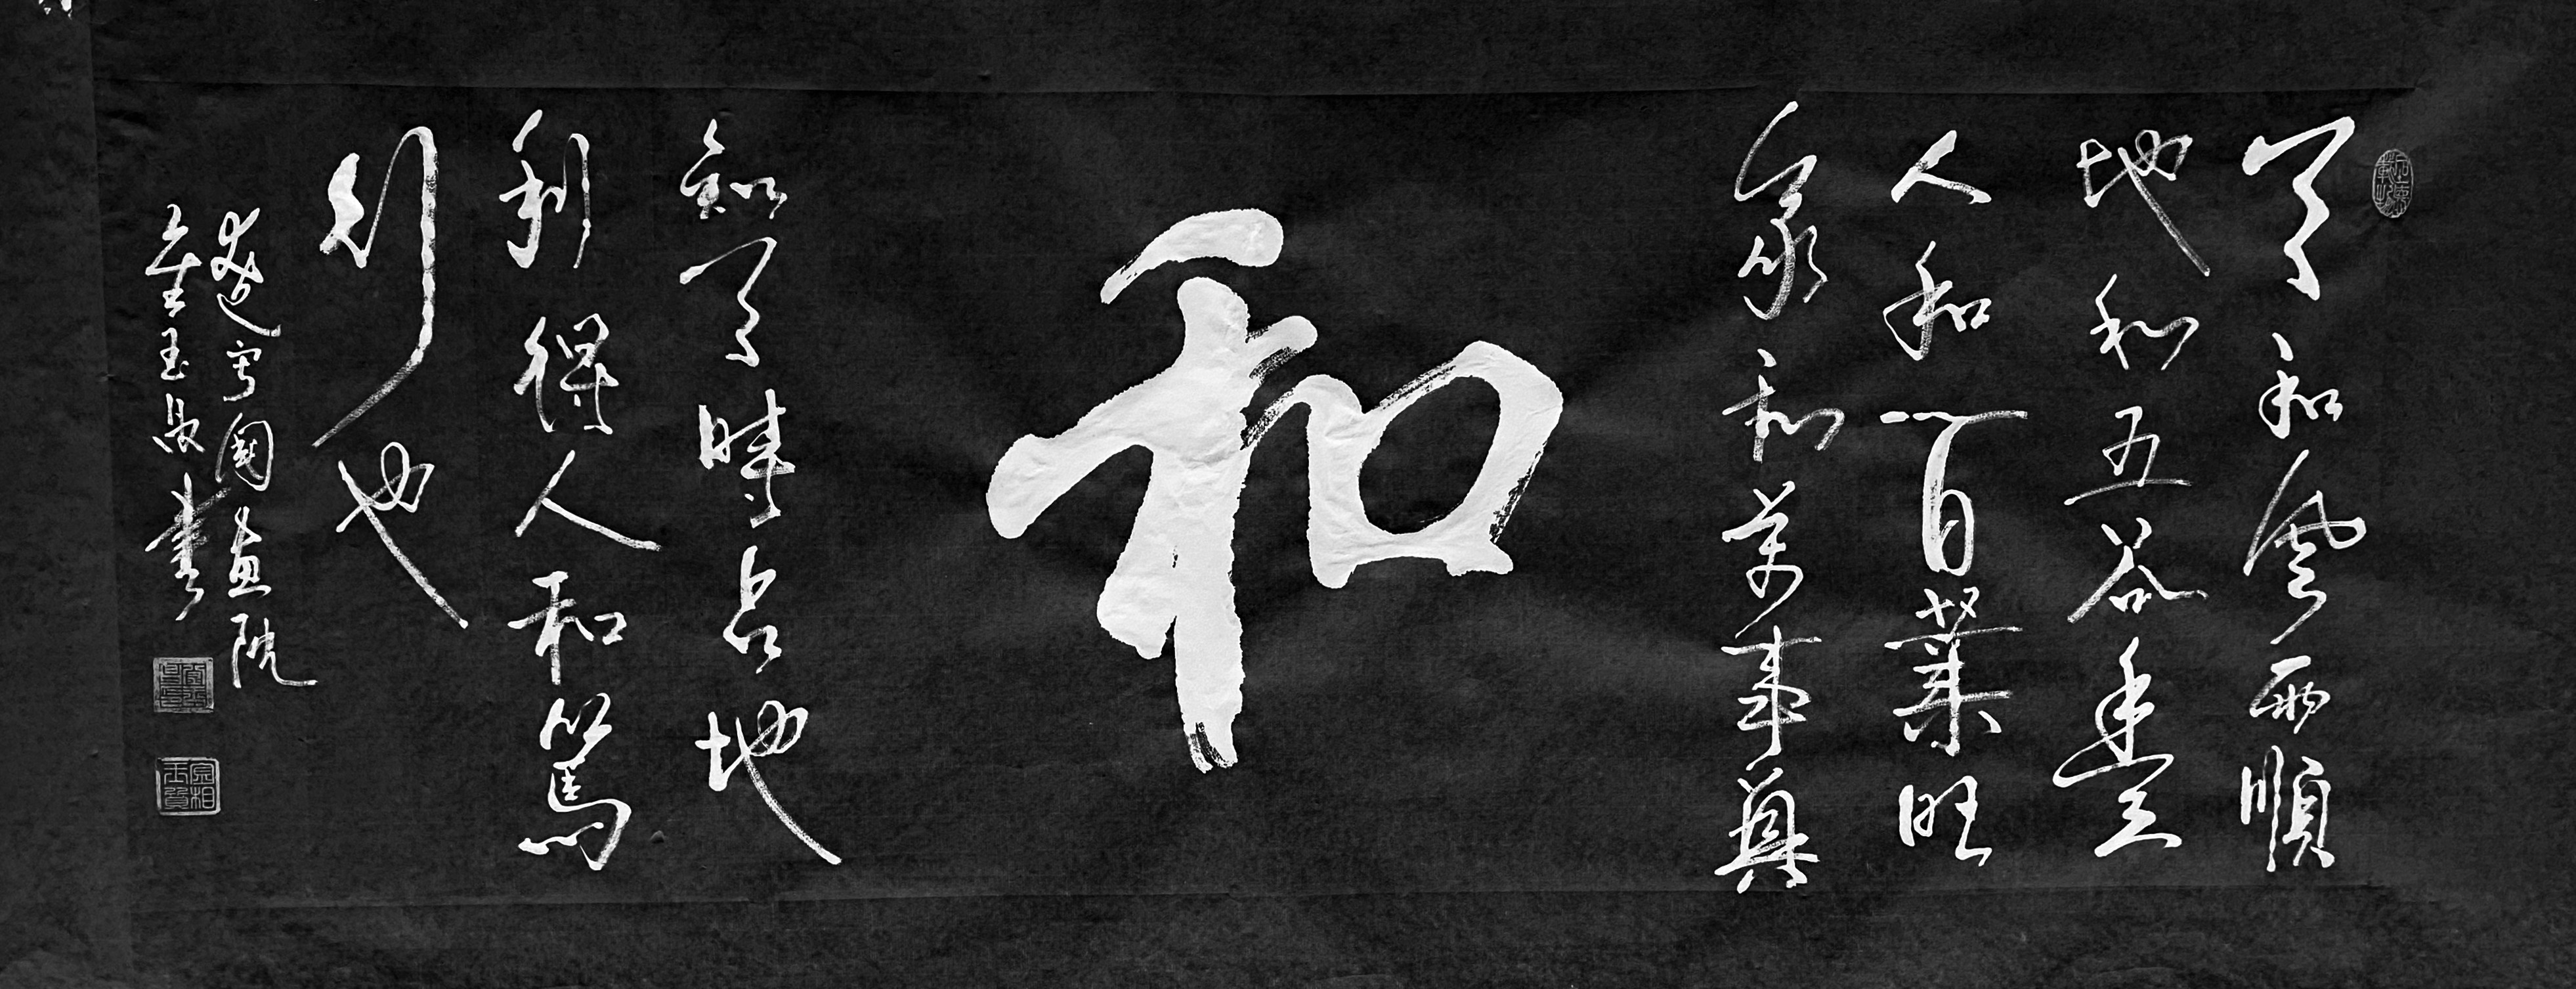 天和風雨順
地和五谷豐
人和百業旺
家和萬事興
和
知天時占地
利得人和篤
行也
遼寧國畫院
金玉書